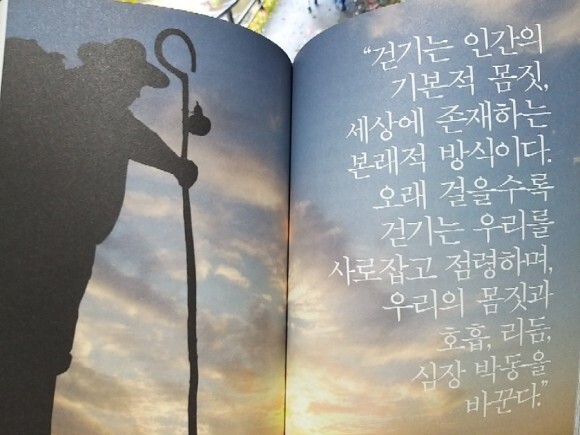 “걷기는 인간의
기본적 몸짓,
세상에 존재하는
본래적 방식이다.
오래 걸을수록
걷기는 우리를
사로잡고 점령하며,
우리의 몸짓과
호흡, 리듬,
심장 박동을
바꾼다.”